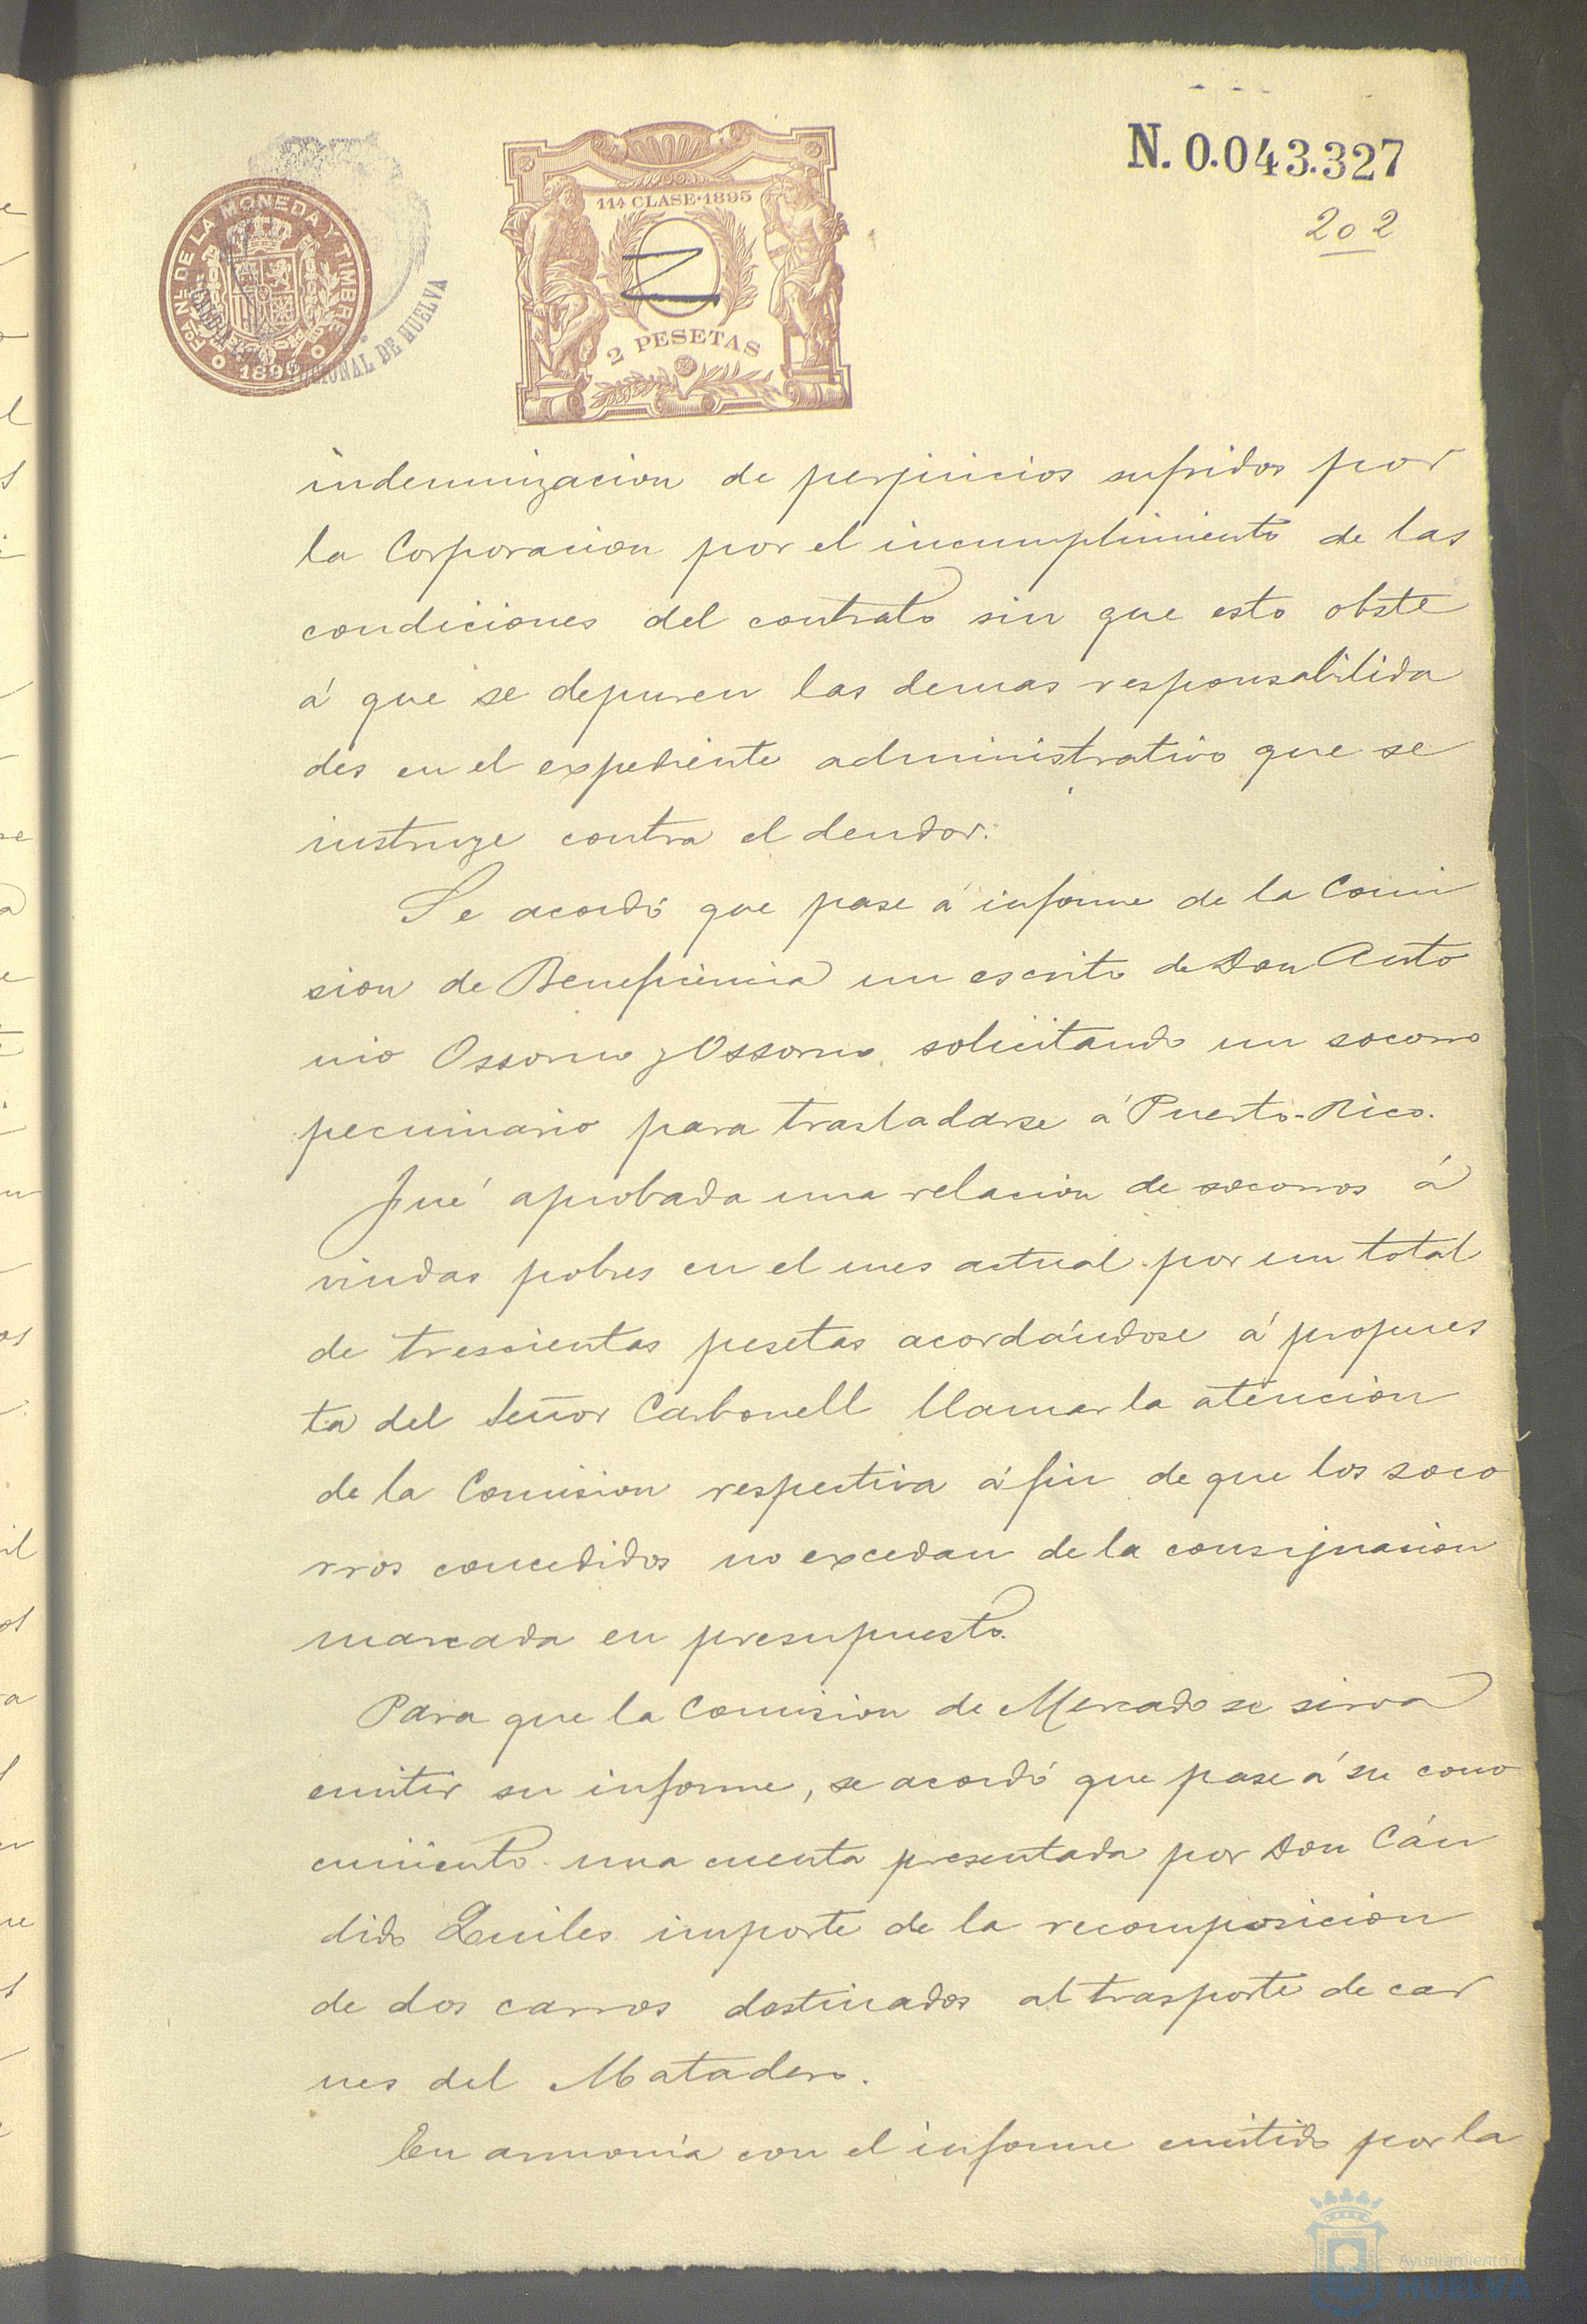 N. 0.043.327
202
FCA NL DE LA MONEDA Y TIMBRE
1896
CIONAL DE HUELVA
11ª CLASE · 1895
2 PESETAS
indemnizacion de perjuicios sufridos por
la Corporacion por el incumplimiento de las
condiciones del contrato sin que esto obste
á que se depuren las demas responsabilida
des en el expediente administrativo que se
instruye contra el deudor.
Se acordó que pase á informe de la Comi
sion de Beneficencia un escrito de Don Anto
nio Ossorno y Ossorno, solicitando un socorro
pecuniario para trasladarse á Puerto-Rico.
Fué aprobada una relacion de socorros á
viudas pobres en el mes actual por un total
de trescientas pesetas acordándose á propues
ta del Señor Carbonell llamar la atencion
de la Comision respectiva á fin de que los soco
rros concedidos no excedan de la consignacion
marcada en presupuesto.
Para que la Comision de Mercado se sirva
emitir su informe, se acordó que pase á su cono
cimiento una cuenta presentada por Don Cán
dido Quiles importe de la recomposicion
de dos carros destinados al trasporte de car
nes del Matadero.
En armonía con el informe emitido por la
Ayuntamiento de
HUELVA